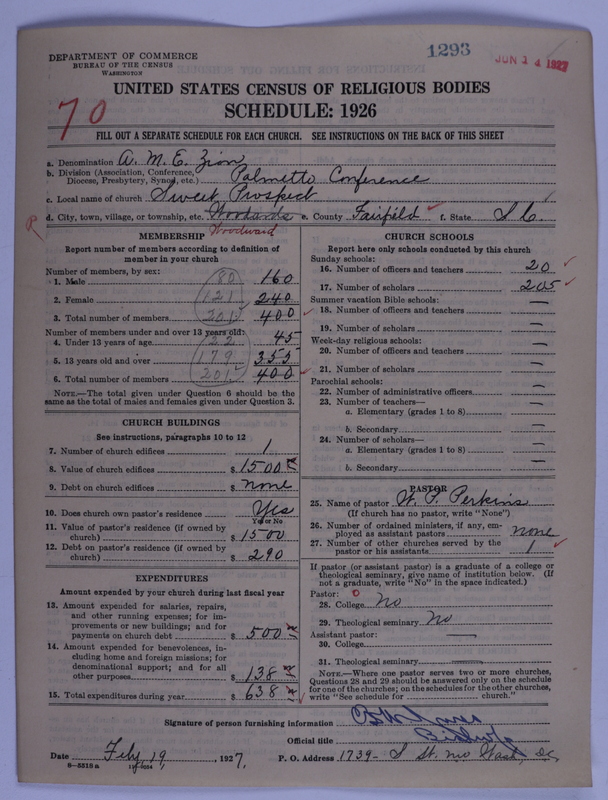 DEPARTMENT OF COMMERCE
BUREAU OF THE CENSUS
WASHINGTON
1293
JUN 14 1927
UNITED STATES CENSUS OF RELIGIOUS BODIES
SCHEDULE: 1926
70
FILL OUT A SEPARATE SCHEDULE FOR EACH CHURCH. SEE INSTRUCTIONS ON THE BACK OF THIS SHEET
a. Denomination A. M. E. Zion
b. Division (Association, Conference, Diocese, Presbytery, Synod, etc.) Palmetto Conference
c. Local name of church Sweet Prospect
d. City, town, village, or township, etc. Woodards e. County Fairfild f. State S C.
Woodward
MEMBERSHIP
Report number of members according to definition of
member in your church
Number of members, by sex:
1. Male 80 160
2. Female 121 240
3. Total number of members 201 400
Number of members under and over 13 years old:
4. Under 13 years of age 22 45
5. 13 years old and over 179 355
6. Total number of members 201 400
NOTE.—The total given under Question 6 should be the
same as the total of males and females given under Question 3.
CHURCH BUILDINGS
See instructions, paragraphs 10 to 12
7. Number of church edifices 1
8. Value of church edifices $1500
9. Debt on church edifices $ none
10. Does church own pastor's residence? Yes
Yes or No
11. Value of pastor's residence (if owned by
church) $1500
12. Debt on pastor's residence (if owned by
church) $290
EXPENDITURES
Amount expended by your church during last fiscal year
13. Amount expended for salaries, repairs,
and other running expenses; for im-
provements or new buildings; and for
payments on church debt $500
14. Amount expended for benevolences, in-
cluding home and foreign missions; for
denominational support; and for all
other purposes $138
15. Total expenditures during year $638
CHURCH SCHOOLS
Report here only schools conducted by this church
Sunday schools:
16. Number of officers and teachers 20
17. Number of scholars 205
Summer vacation Bible schools:
18. Number of officers and teachers —
19. Number of scholars —
Week-day religious schools:
20. Number of officers and teachers —
21. Number of scholars —
Parochial schools:
22. Number of administrative officers —
23. Number of teachers—
a. Elementary (grades 1 to 8) —
b. Secondary —
24. Number of scholars—
a. Elementary (grades 1 to 8) —
b. Secondary —
PASTOR
25. Name of pastor W. P. Perkins
(If church has no pastor, write "None")
26. Number of ordained ministers, if any, em-
ployed as assistant pastors none
27. Number of other churches served by the
pastor or his assistants 1
If pastor (or assistant pastor) is a graduate of a college or
theological seminary, give name of institution below. (If
not a graduate, write "No" in the space indicated.)
Pastor:
28. College No
29. Theological seminary No
Assistant pastor:
30. College
31. Theological seminary
NOTE.—Where one pastor serves two or more churches,
Questions 28 and 29 should be answered only on the schedule
for one of the churches; on the schedules for the other churches,
write "See schedule for church."
Signature of person furnishing information
Official title Bishop
Date Feb, 19, 1927. P. O. Address 1739- S St. NW Wash, DC,
8—5518a